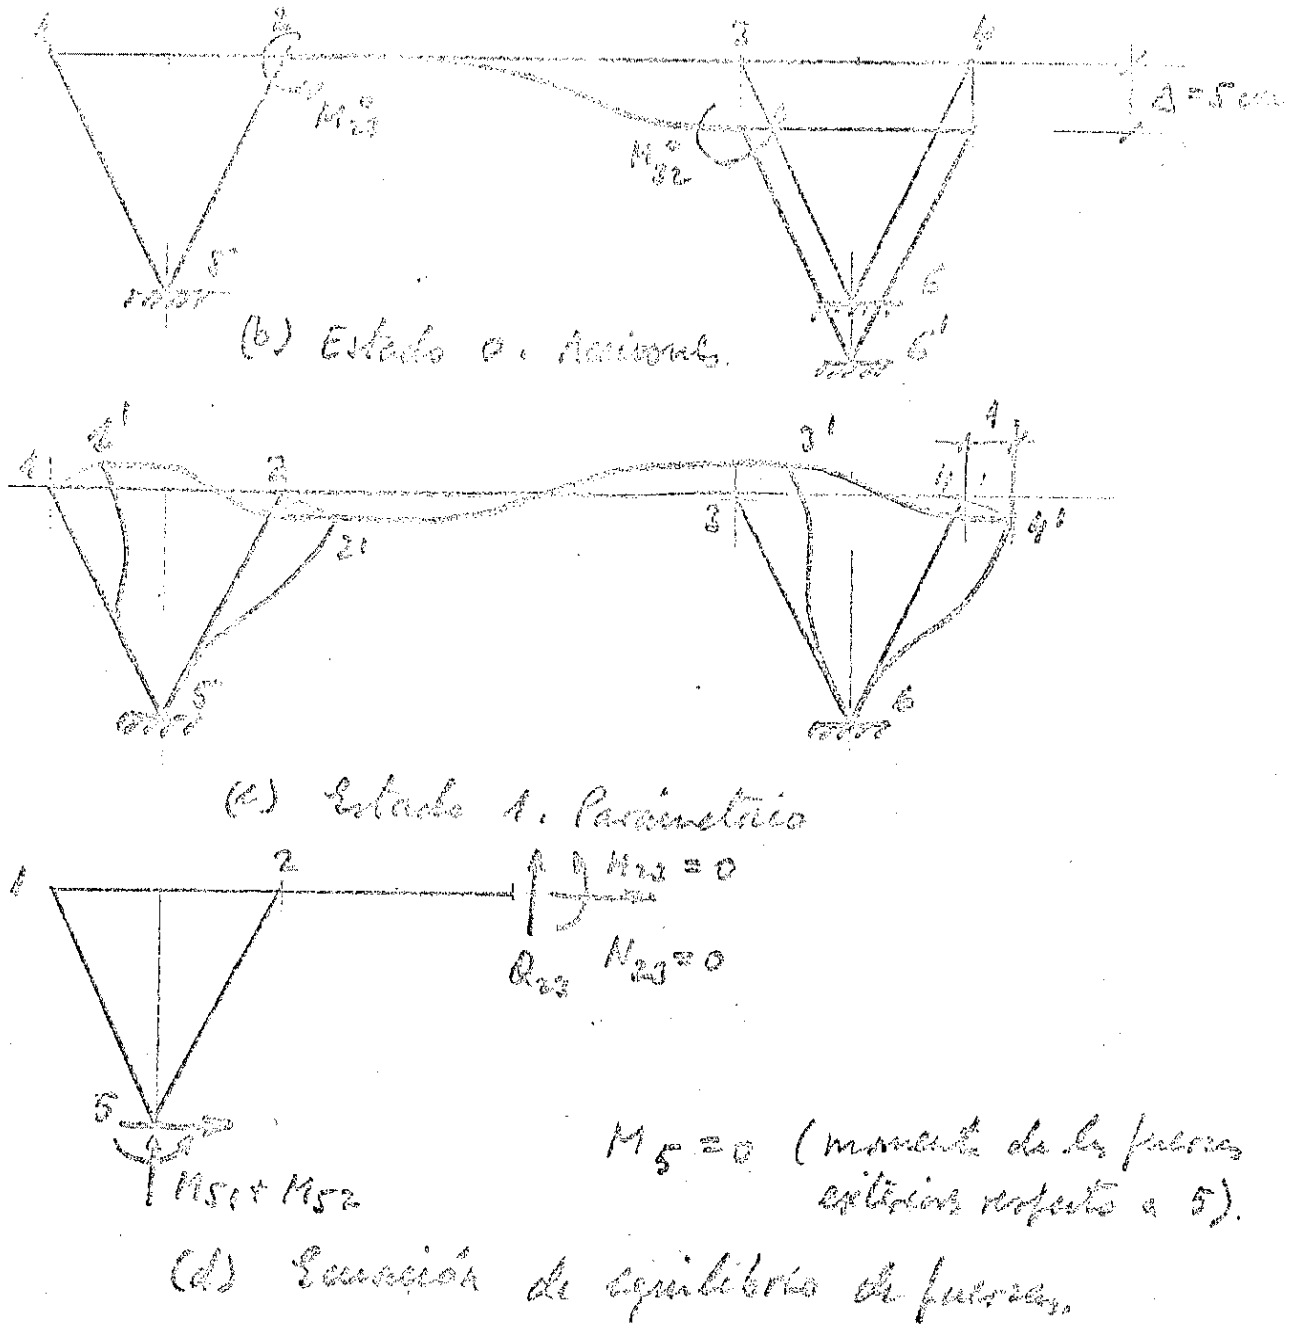 1 2 3 4
Δ = 5 cm
M°23
M°32
5 6
6'
(b) Estado 0.
1 1' 2 3' 1
2' 3 4 4'
5 6
(c) Estado 1. Paramétrico
1 2 M23 = 0
Q23 N23 = 0
5
M51 + M52
M5 = 0 (momento de las fuerzas
exteriores respecto a 5).
(d) Ecuación de equilibrio de fuerzas.